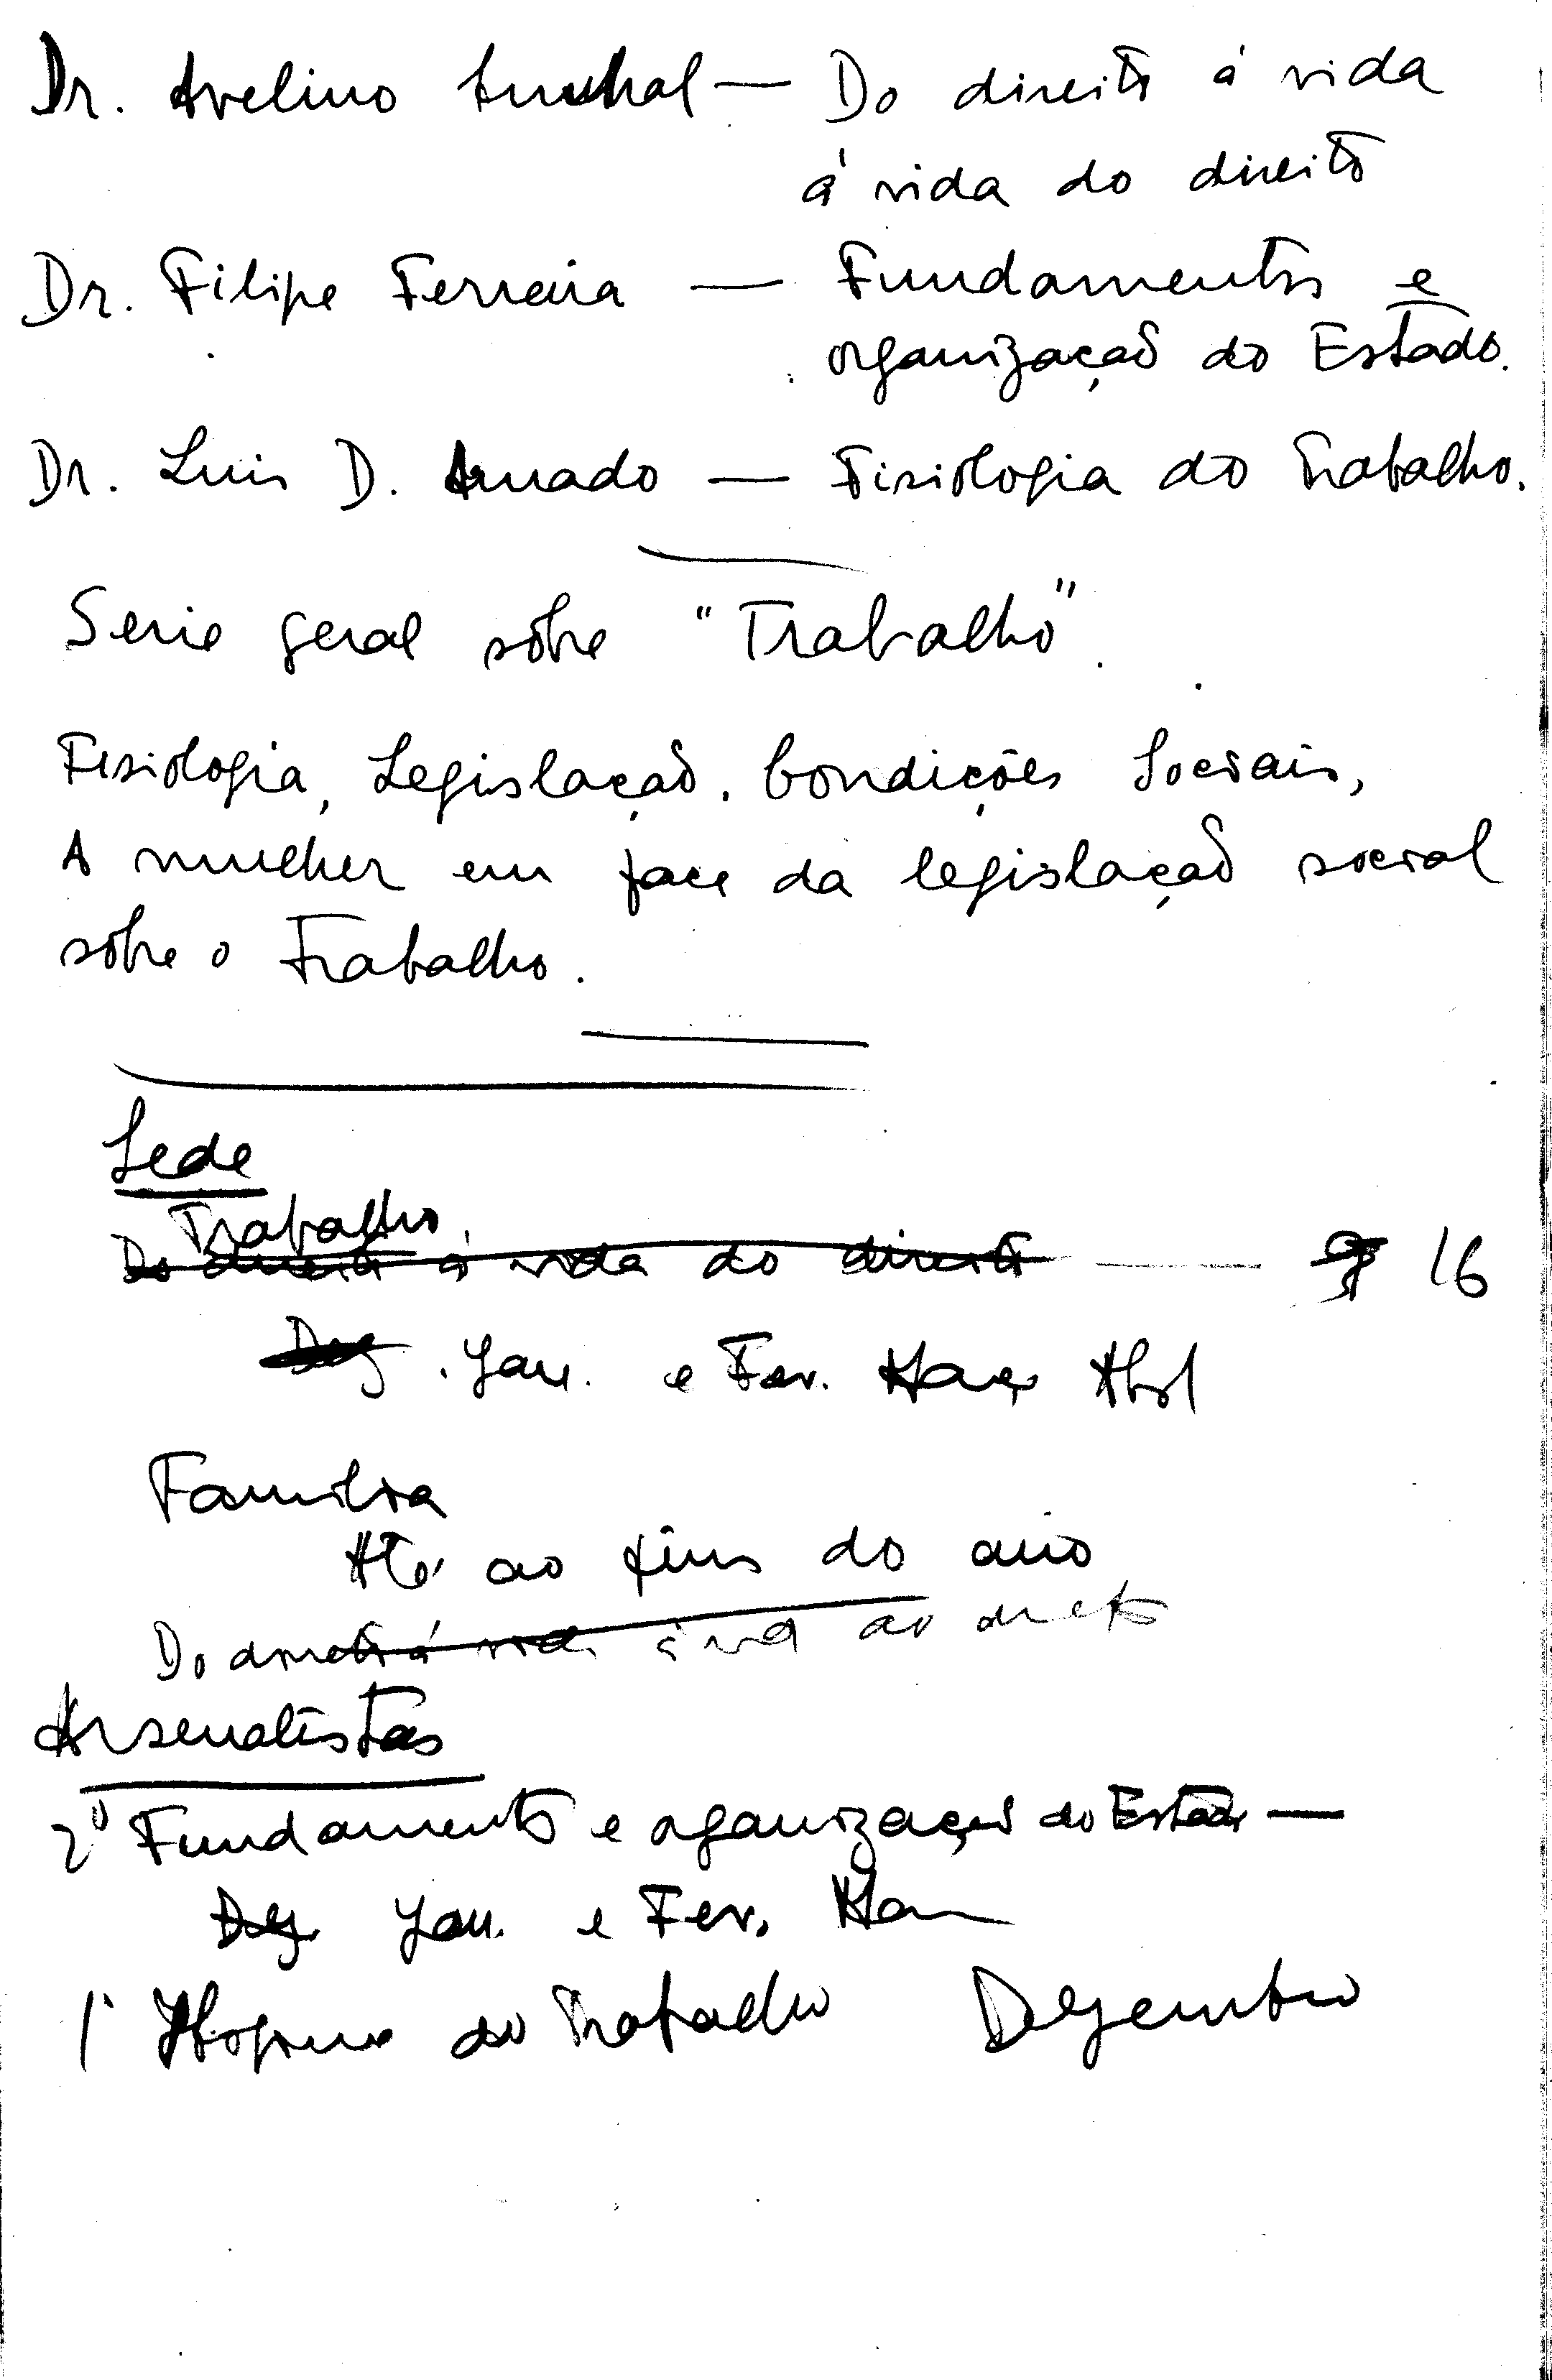 Dr. Avelino Cunhal — Do direito á vida
á vida do direito
Dr. Filipe Ferreira — Fundamentos e
organização do Estado.
Dr. Luis D. Amado — Fisiologia do Trabalho.
Serie geral sôbre "Trabalho".
Fisiologia, Legislação. Condições Sociais,
A mulher em face da legislação social
sôbre o Trabalho.
Sede
Trabalho
Do direito á vida do direito — 16
Dez. Jan. e Fev. Março Abril
Familia
Até ao fins do ano
Do direito á vida á vida do direito
Arsenalistas
2º Fundamentos e organização do Estado —
Dez. Jan. e Fev. Mar
1º do Trabalho Dezembro